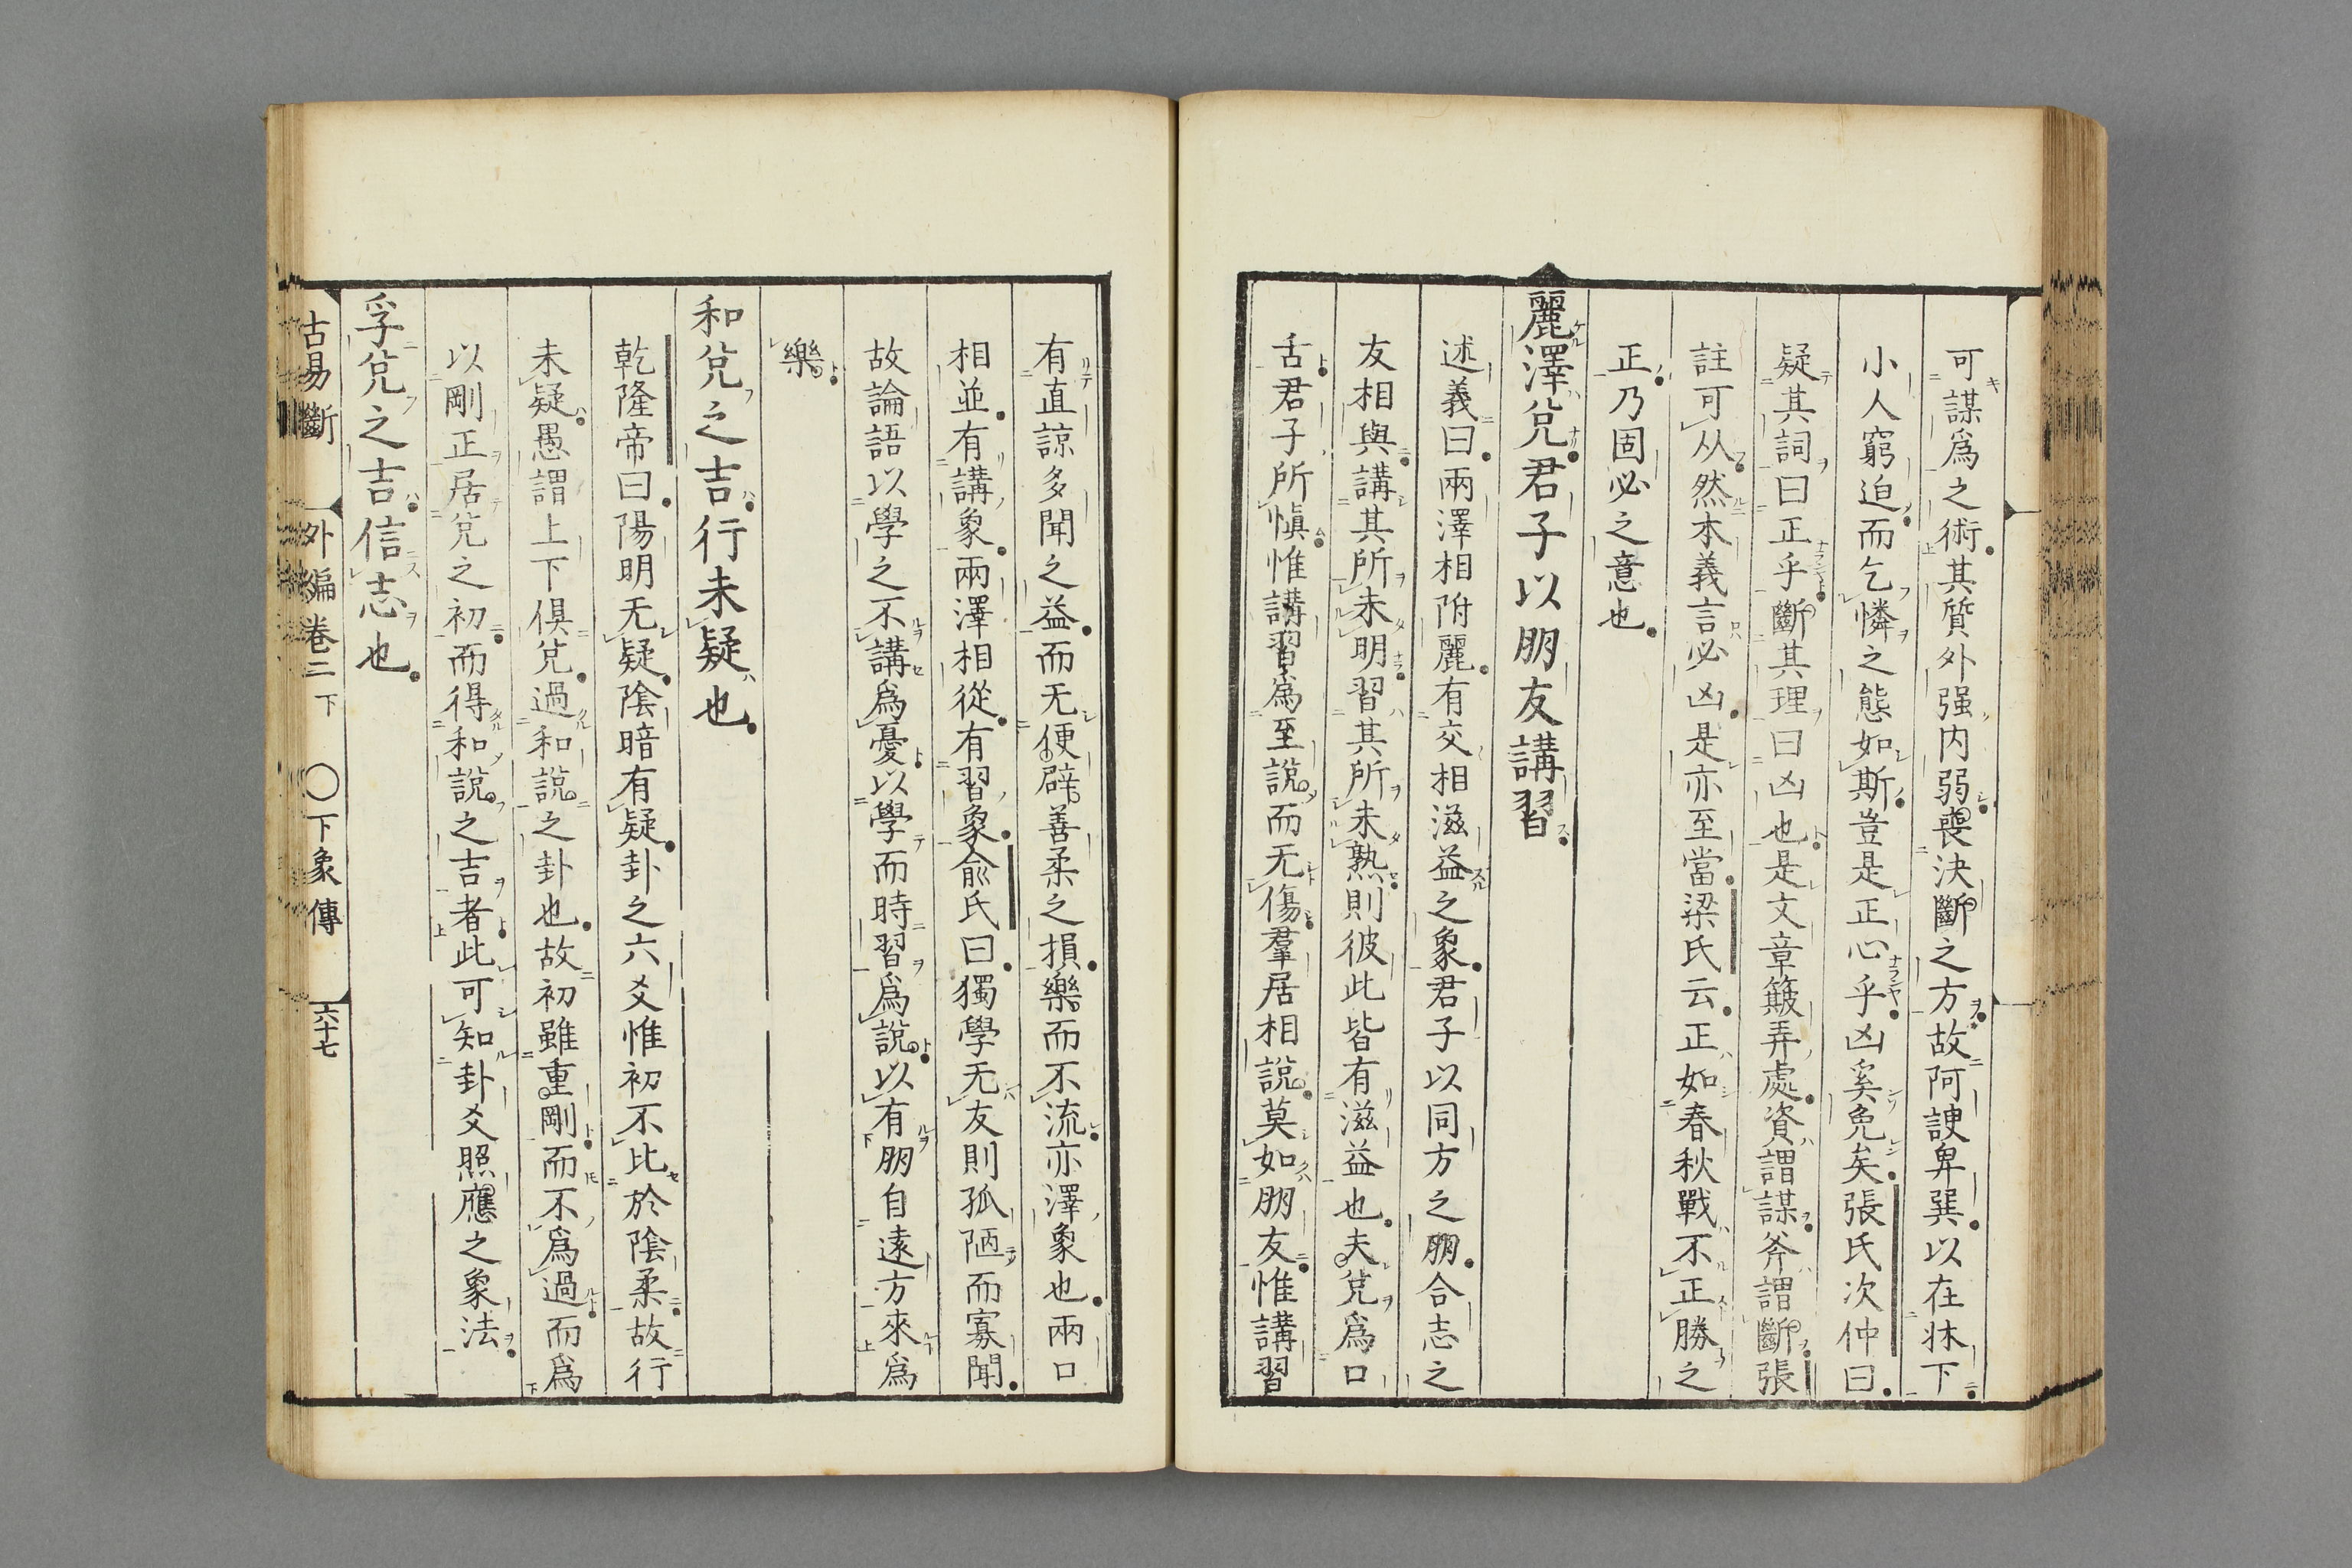 可謀爲之術其質外强内弱喪決斷之方故阿諛卑巽以在牀下
小人窮迫而乞憐之態如斯豈是正心乎凶奚免矣張氏次仲曰
疑其詞曰正乎斷其理曰凶也是文章簸弄處資謂謀斧謂斷張
註可从然本義言必凶是亦至當梁氏云正如春秋戰不正勝之
正乃固必之意也
麗澤兌君子以朋友講習
述義曰兩澤相附麗有交相滋益之象君子以同方之朋合志之
友相與講其所未明習其所未熟則彼此皆有滋益也夫兌爲口
舌君子所愼惟講習爲至說而无傷羣居相說莫如朋友惟講習
有直諒多聞之益而无便辟善柔之損樂而不流亦澤象也兩口
相並有講象兩澤相從有習象俞氏曰獨學无友則孤陋而寡聞
故論語以學之不講爲憂以學而時習爲說以有朋自遠方來爲
樂
和兌之吉行未疑也
乾隆帝曰陽明无疑陰暗有疑卦之六爻惟初不比於陰柔故行
未疑愚謂上下俱兌過和說之卦也故初雖重剛而不爲過而爲
以剛正居兌之初而得和說之吉者此可知卦爻照應之象法
孚兌之吉信志也
古易斷 外編卷二下 ○下象傳 六十七